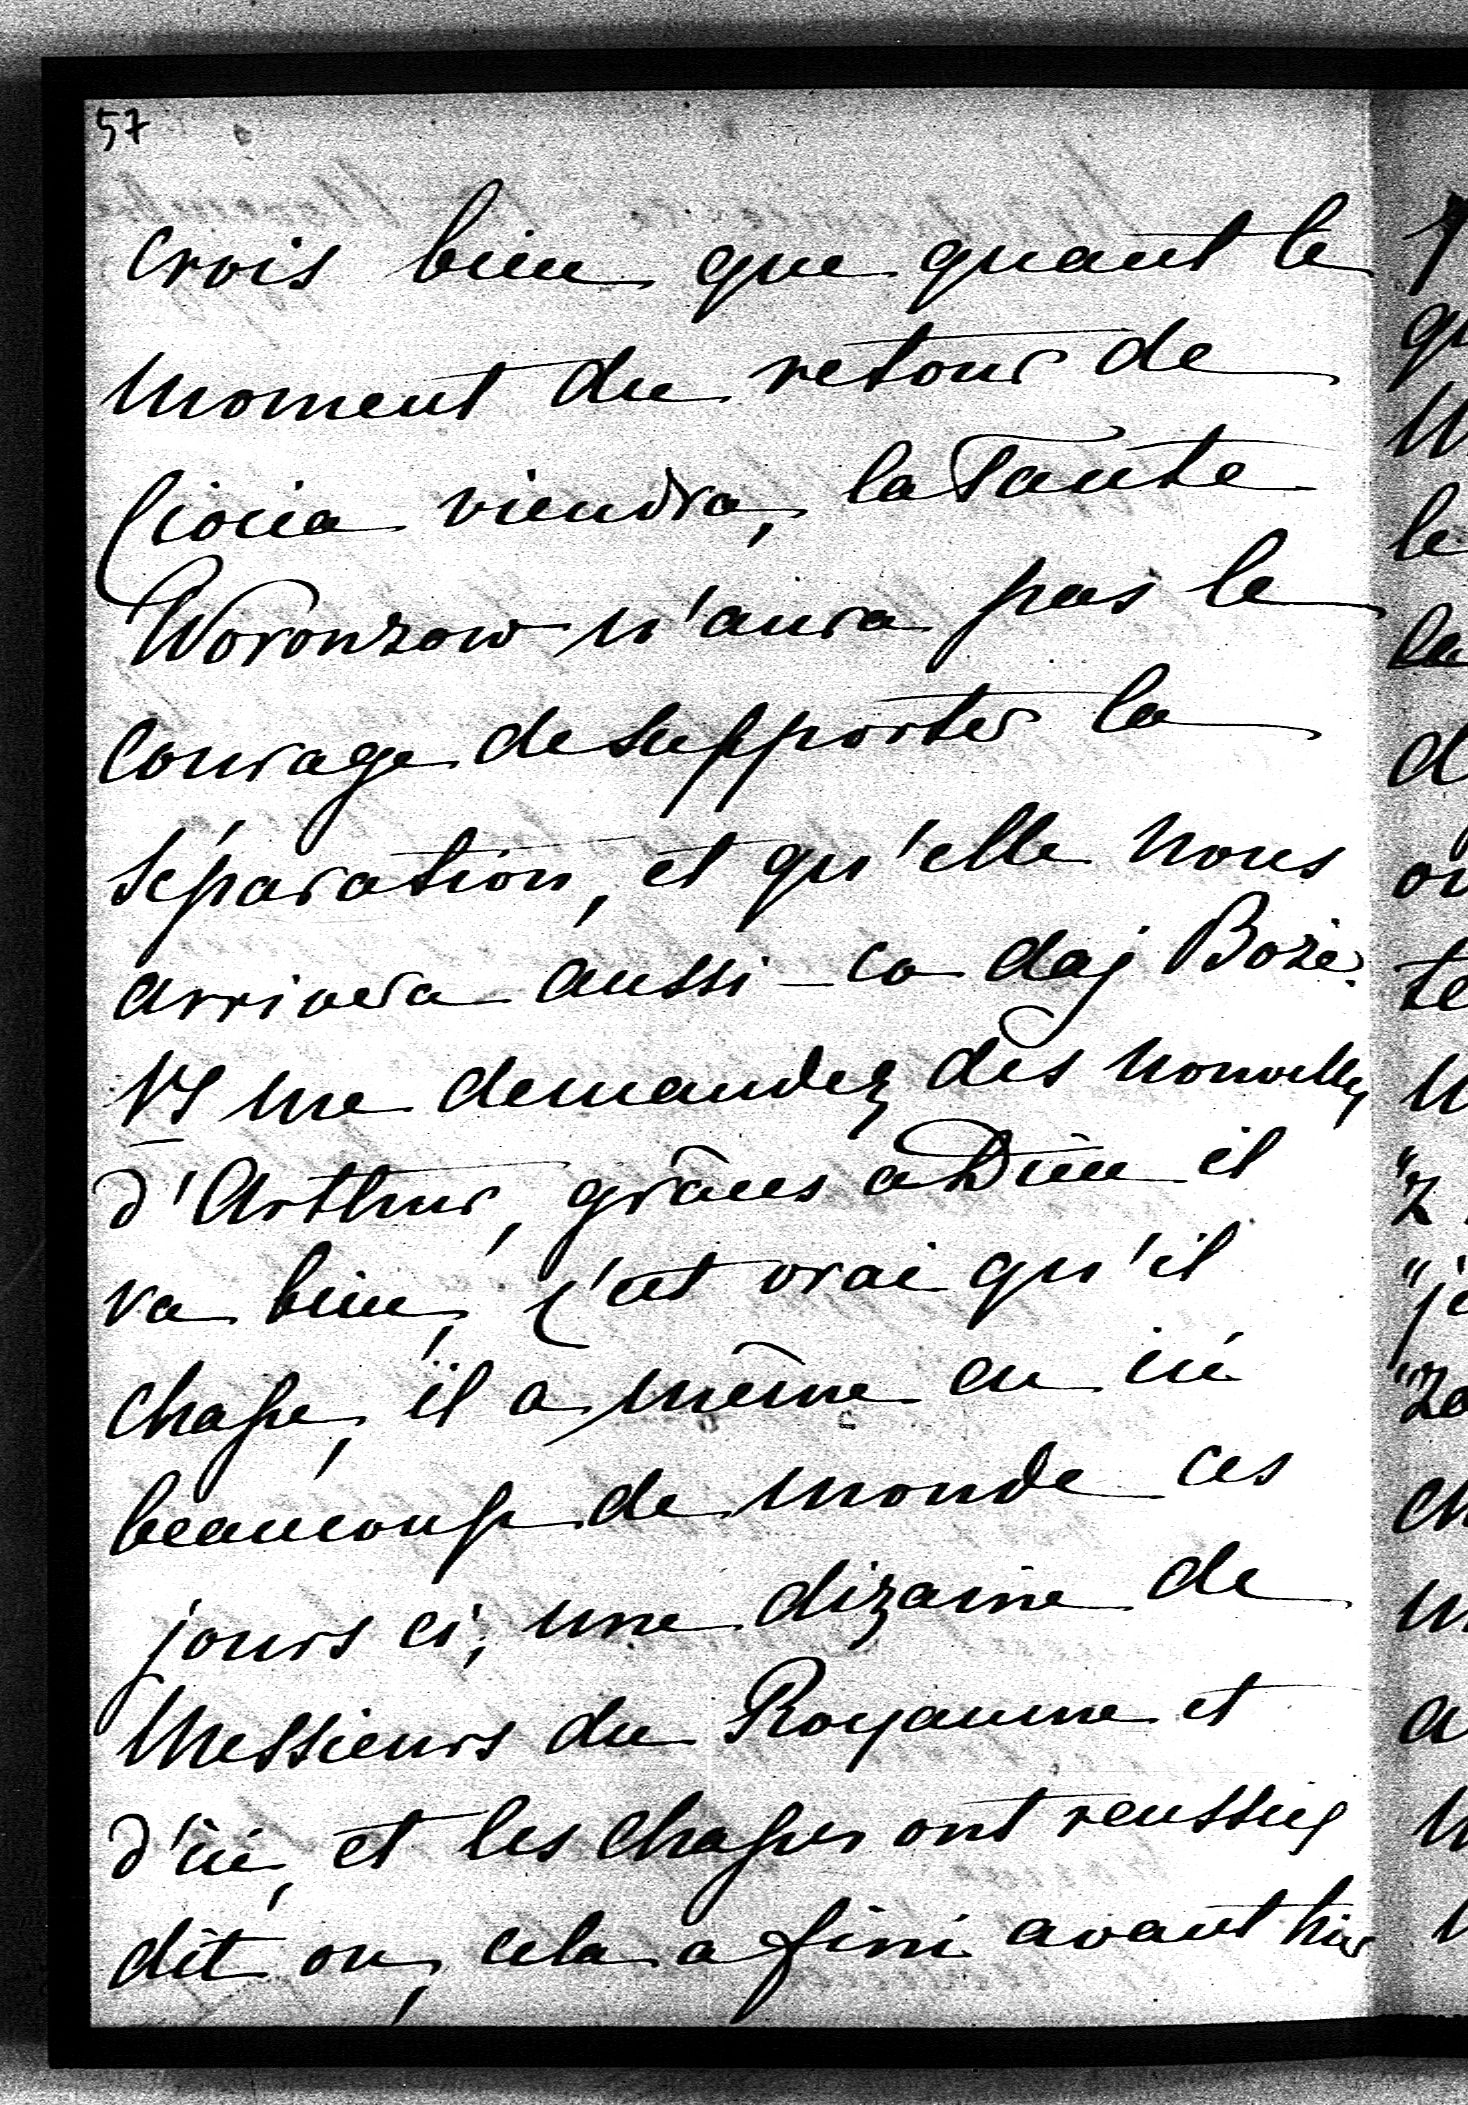 57
crois bien que quant le
moment du retour de
Ciocia viendra, la Tante
Woronzow n'aura pas le
courage de supporter la
séparation, et qu'elle nous
arrivera aussi – co daj Boże.
Vs me demandez des nouvelles
d'Arthur, grâces à Dieu il
va bien, c'est vrai qu'il
chasse, il a même eu ici
beaucoup de monde ces
jours ci, une dizaine de
Messieurs du Royaume et
d'ici, et les chasses ont reussies
dit on, cela a fini avant hier